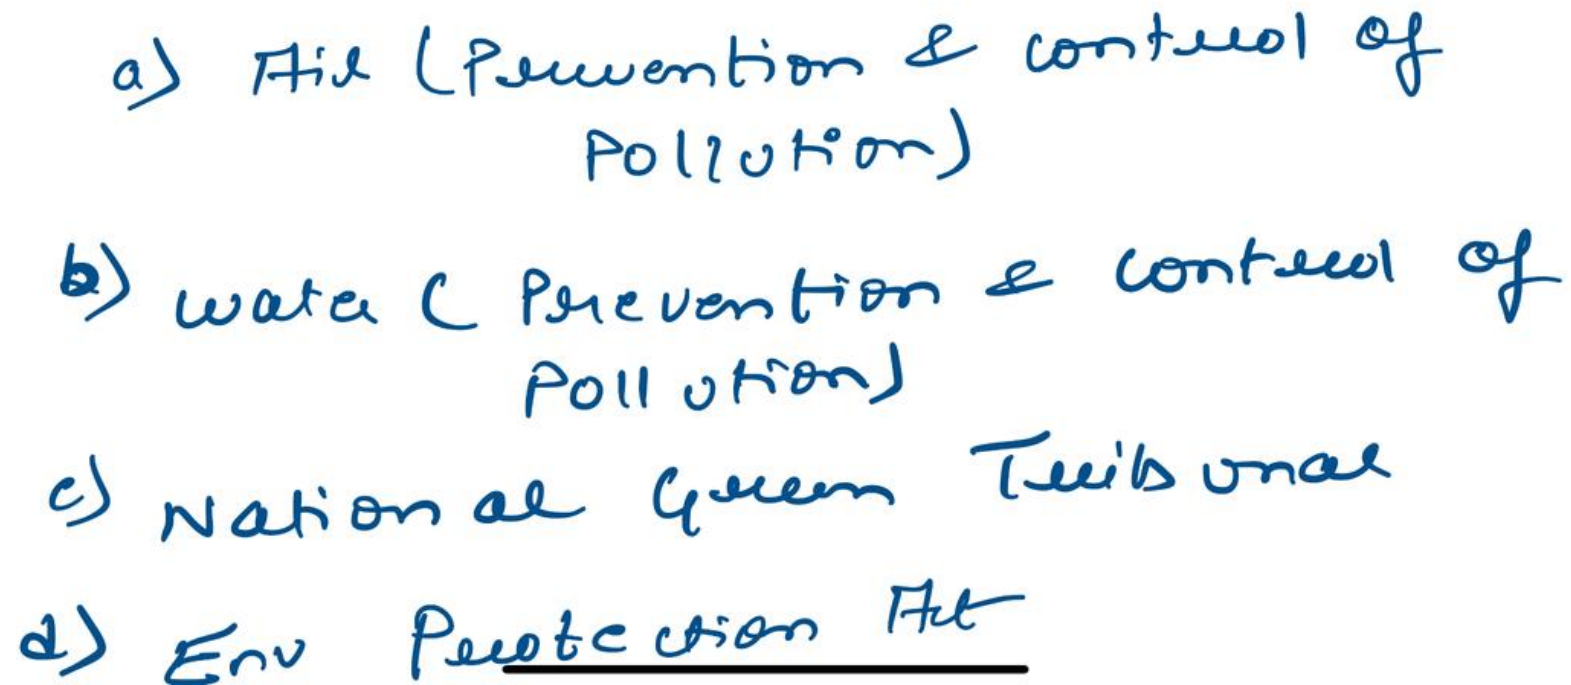 a) Air (Prevention & control of
Pollution)
b) water ( Prevention & control of
Pollution)
c) National Green Tribunal
d) Env Protection Act